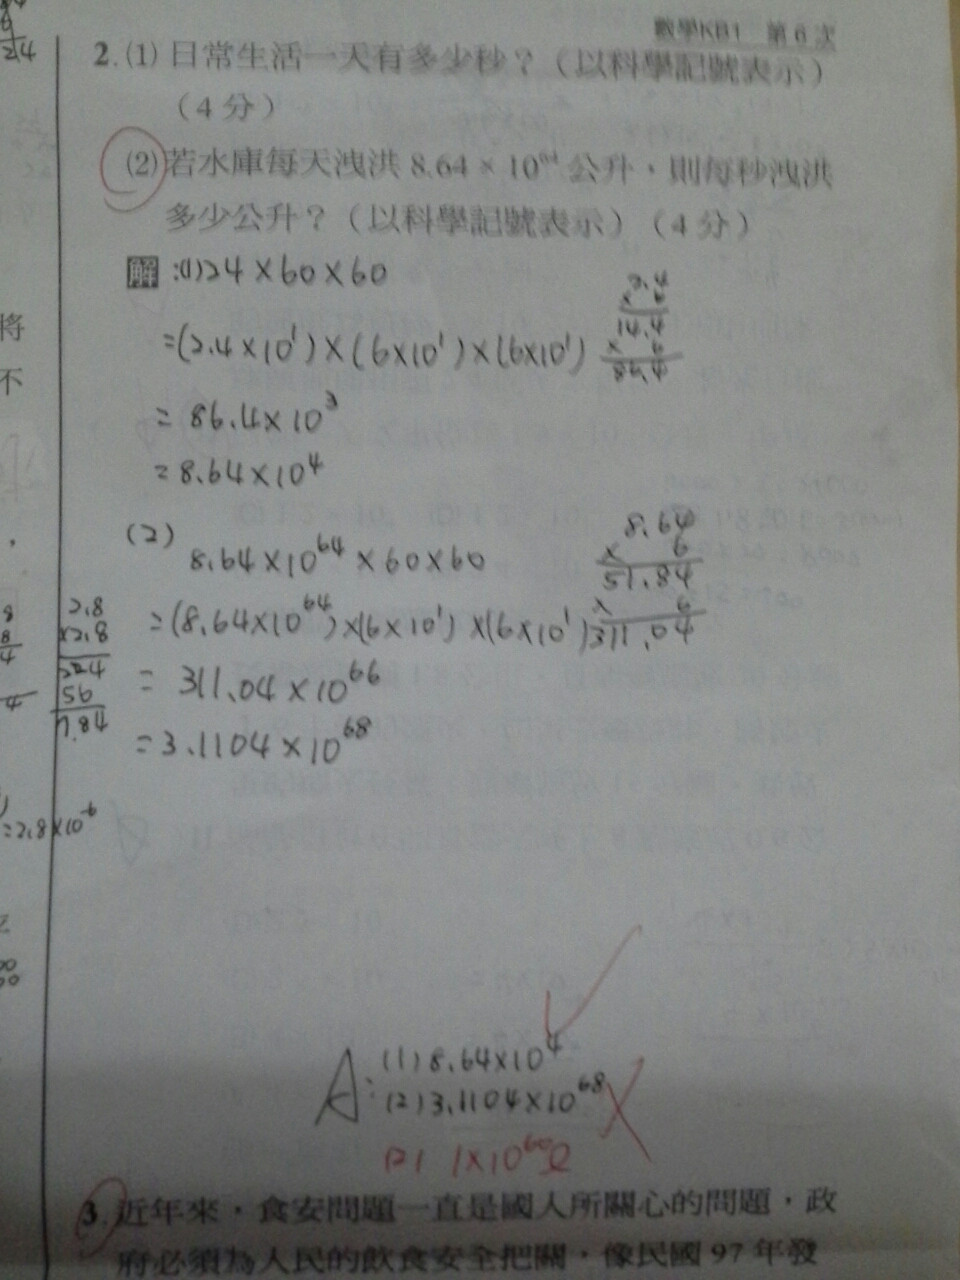 數學KB1 第6次
2.(1) 日常生活一天有多少秒？（以科學記號表示）
（4分）
(2) 若水庫每天洩洪 8.64 × 10⁶⁴ 公升，則每秒洩洪
多少公升？（以科學記號表示）（4分）
解:(1)24×60×60
2.4
× 6
14.4
× 6
86.4
=(2.4×10¹)×(6×10¹)×(6×10¹)
= 86.4×10³
= 8.64×10⁴
(2)
8.64×10⁶⁴×60×60
8.64
× 6
51.84
× 6
311.04
=(8.64×10⁶⁴)×(6×10¹)×(6×10¹)
= 311.04×10⁶⁶
= 3.1104×10⁶⁸
將
不
2.8
×2.8
224
56
7.84
=2.8×10⁻⁶
A:(1)8.64×10⁴
(2)3.1104×10⁶⁸
(2) 1×10⁶⁰
3. 近年來，食安問題一直是國人所關心的問題，政
府必須為人民的飲食安全把關，像民國 97 年發